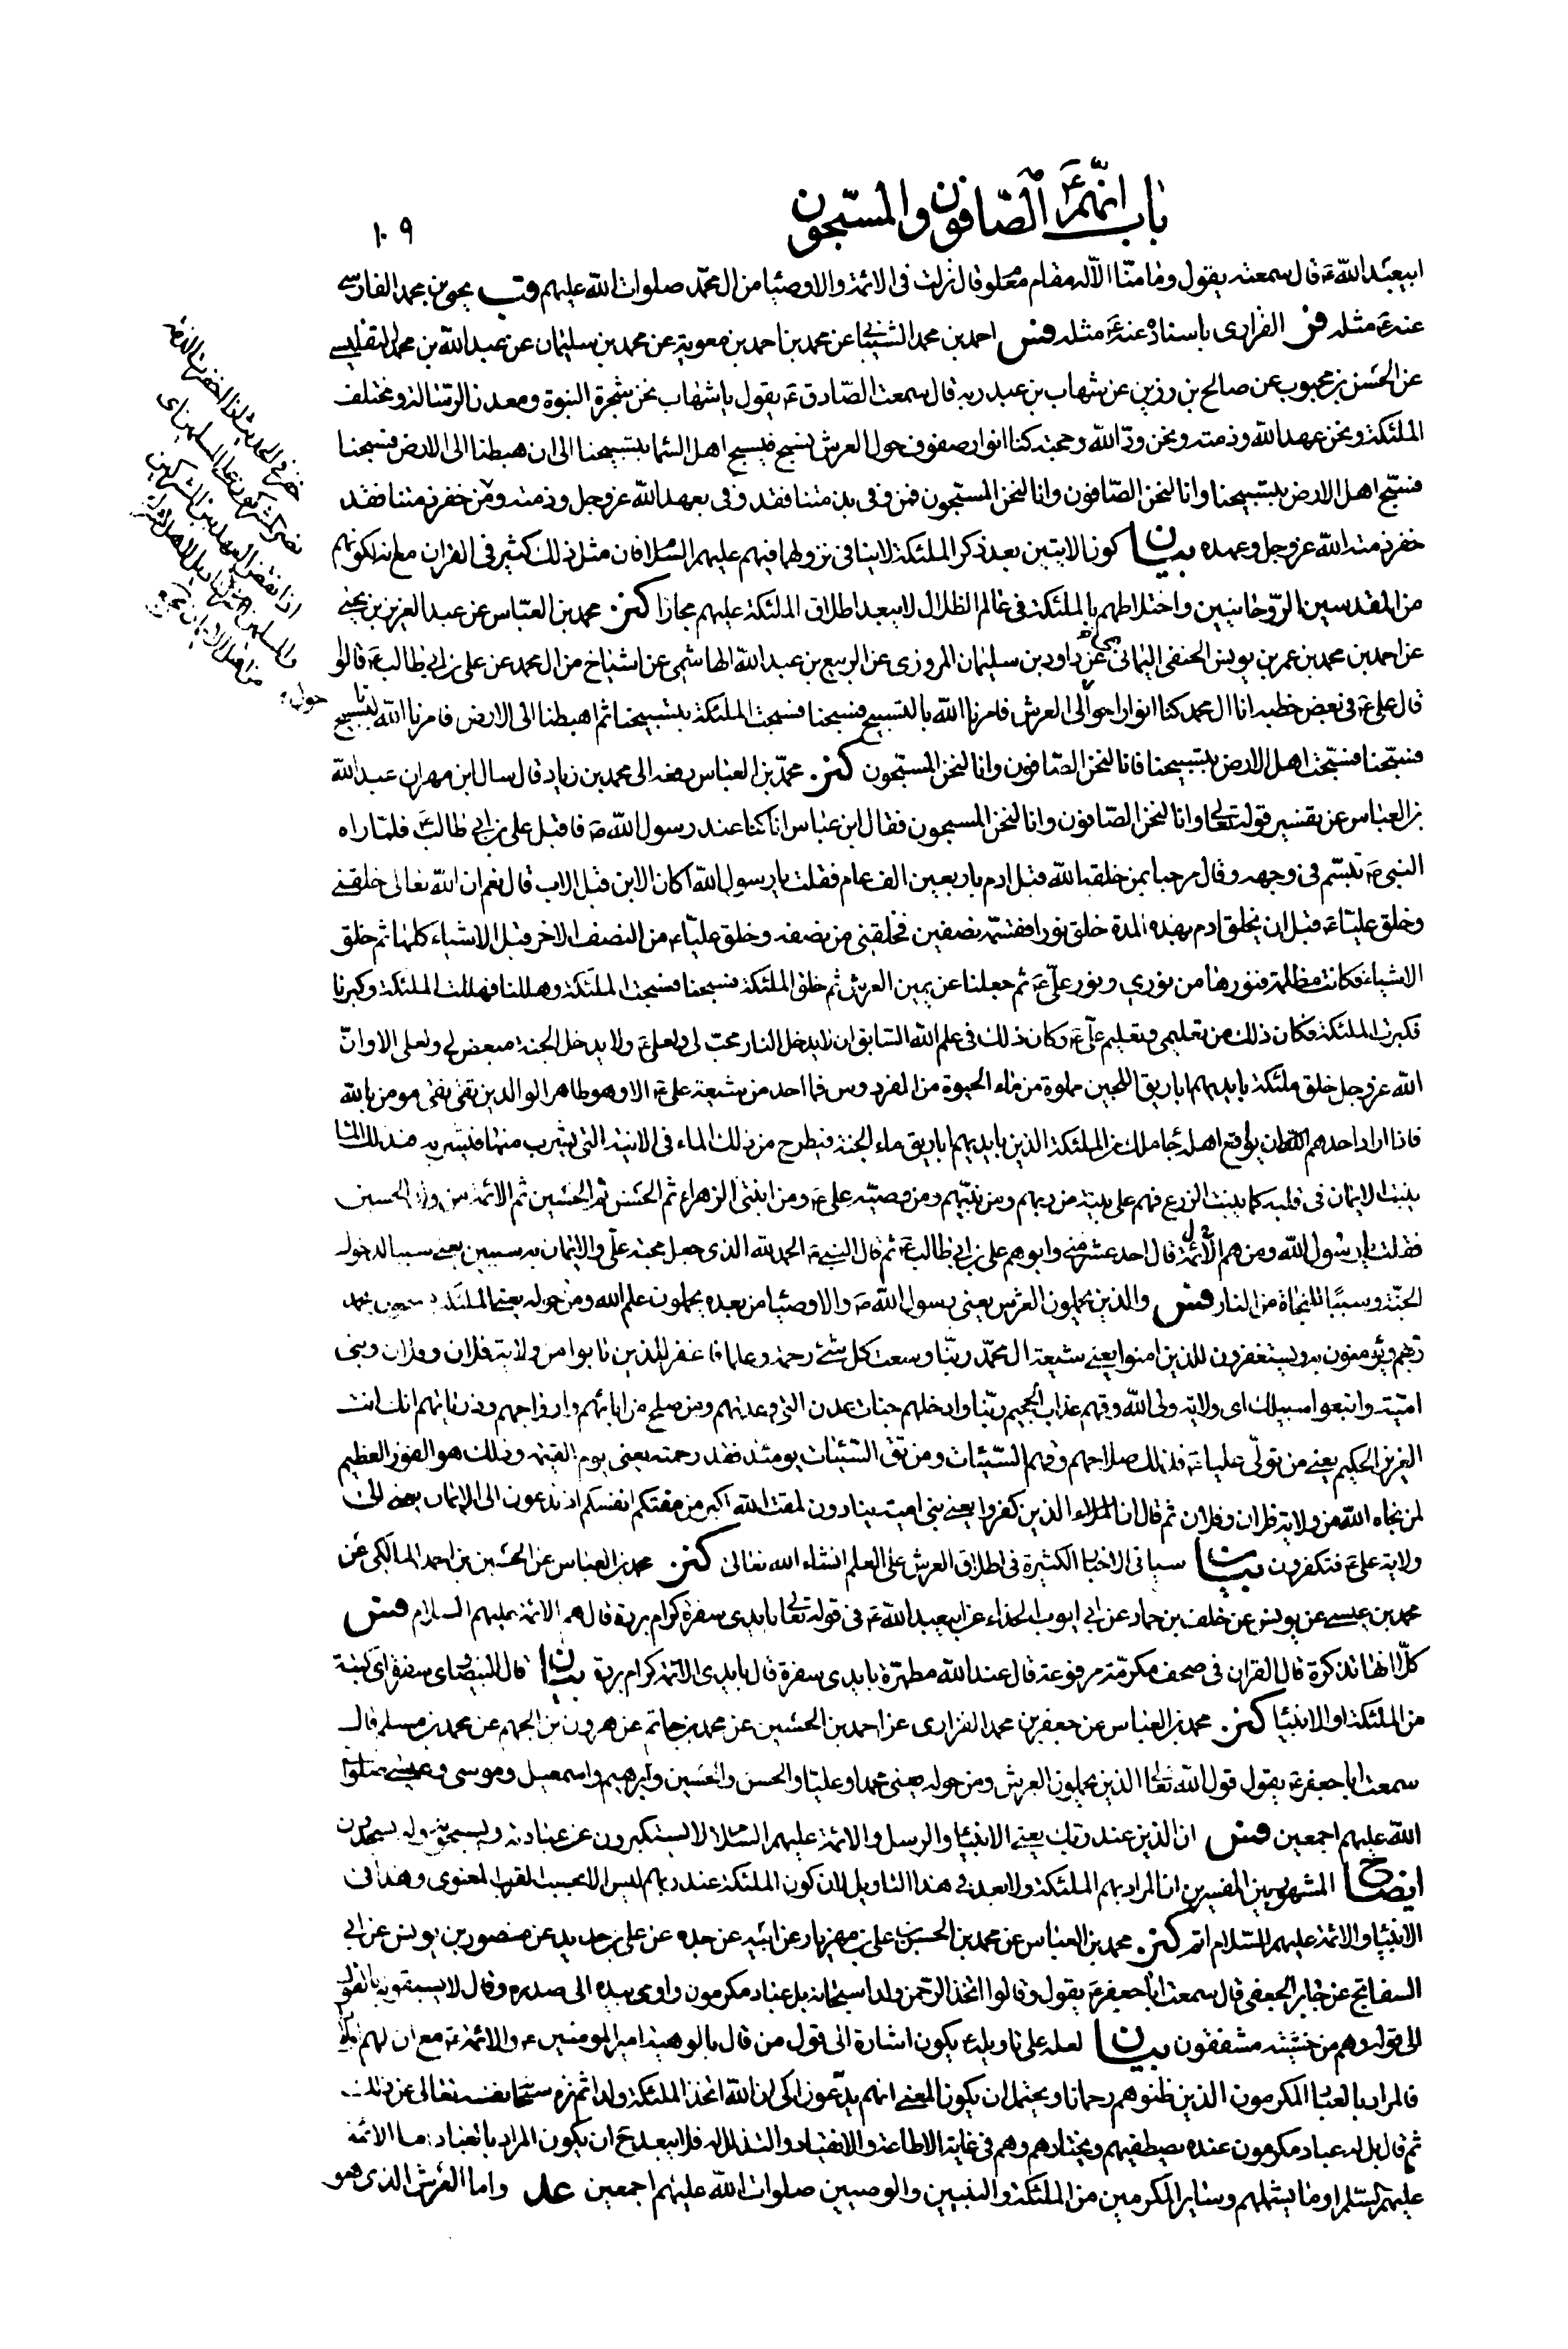 باب انّهم الصّافون والمسبّحون
١٠٩
ابيعبد الله ع قال سمعته يقول وما منّا الّا له مقام معلوم قال نزلت فى الائمة والاوصيا من ال محمّد صلوات الله عليهم قب يحيى بن محمد الفارسى
عنه ع مثله فر الفزارى باسناده عنه ع مثله فس احمد بن محمد الشيبانى عن محمد بن احمد بن معوية عن محمد بن سليمان عن عبد الله بن محمد التفليسى
عن الحسن بن محبوب عن صالح بن رزين عن شهاب بن عبد ربه قال سمعت الصّادق ع يقول يا شهاب نحن شجرة النبوة ومعدن الرسالة ومختلف
الملئكة ونحن عهد الله وذمته ونحن ودّ الله وحجته كنا انوار صفوف حول العرش نسبح فيسبح اهل السّما بتسبيحنا الى ان هبطنا الى الارض فسبحنا
فسبّح اهل الارض بتسبيحنا وانا لنحن الصّافون وانا لنحن المسبحون فمن وفى بذمتنا فقد وفى بعهد الله عز وجل وذمته ومن خفر ذمتنا فقد
خفر ذمة الله عز وجل وعهده بيان كون الايتين بعد ذكر الملئكة لا ينافى نزولهما فيهم عليهم السّلام فان مثل ذلك كثير فى القران مع انه لكونهم
من المقدسين الروحانيين واختلاطهم بالملئكة فى عالم الظلال لا يبعد اطلاق الملئكة عليهم مجازا كنز محمد بن العبّاس عن عبد العزيز بن يحيى
عن احمد بن محمد بن عمر بن يونس الحنفى اليمانى عن داود بن سليمان المروزى عن الربيع بن عبد الله الهاشمى عن اشياخ من ال محمد عن على بن ابى طالب ع قالوا
قال على ع فى بعض خطبه انا ال محمد كنا انوارا حول العرش فامرنا الله بالتسبيح فسبحنا فسبحت الملئكة بتسبيحنا ثم اهبطنا الى الارض فامرنا الله بالتسبيح
فسبّحنا فسبّحت اهل الارض بتسبيحنا فانا لنحن الصّافون وانا لنحن المسبّحون كنز محمّد بن العباس رفعه الى محمد بن زياد قال سال ابن مهران عبد الله
بن العبّاس عن تفسير قوله تعالى وانا لنحن الصّافون وانا لنحن المسبحون فقال ابن عباس انا كنا عند رسول الله ص فاقبل على بن ابى طالب ع فلمّا راه
النبى ص تبسّم فى وجهه وقال مرحبا بمن خلقه الله قبل ادم باربعين الف عام فقلت يا رسول الله اكان الابن قبل الاب قال نعم ان الله تعالى خلقنى
وخلق عليّا ع قبل ان يخلق ادم بهذه المدة خلق نورا فقسّمه نصفين فخلقنى من نصفه وخلق عليّا ع من النصف الاخر قبل الاشياء كلها ثم خلق
الاشياء فكانت مظلمة فنورها من نورى ونور علىّ ع ثم جعلنا عن يمين العرش ثم خلق الملئكة فسبحنا فسبحت الملئكة وهللنا فهللت الملئكة وكبرنا
فكبرت الملئكة فكان ذلك من تعليمى وتعليم علىّ ع وكان ذلك فى علم الله السّابق ان لا يدخل النار محبّ لى ولعلى ع ولا يدخل الجنة مبغض لى ولعلى الا وانّ
الله عز وجل خلق ملئكة بايديهم اباريق اللجين مملوة من ماء الحيوة من الفردوس فما احد من شيعة على ع الا وهو طاهر الوالدين تقى نقى مومن بالله
فاذا اراد احدهم ان يواقع اهله جاء ملك من الملئكة الذين بايديهم اباريق ماء الجنة فيطرح من ذلك الماء فى الانية التى يشرب منها فيشربه فبذلك الماء
ينبت الايمان فى قلبه كما ينبت الزرع فهم على بينة من ربهم ومن نبيّهم ومن وصيّه على ع ومن ابنتى الزهراء ثم الحسن ثم الحسين ثم الائمة من ولد الحسين
فقلت يا رسول الله ومن هم الائمة قال احد عشر منى وابوهم على بن ابى طالب ع ثم قال النبى ص الحمد لله الذى جعل محبة علىّ والايمان به سببين يعنى سببا لدخول
الجنّة وسببا للنجاة من النار فس والذين يحملون العرش يعنى رسول الله ص والاوصيا من بعده يحملون علم الله ومن حوله يعنى الملئكة يسبحون بحمد
ربّهم ويؤمنون به ويستغفرون للذين امنوا يعنى شيعة ال محمّد ربّنا وسعت كل شئ رحمة وعلما فاغفر للذين تابوا من ولاية فلان وفلان وبنى
اميّة واتبعوا سبيلك اى ولاية ولى الله وقهم عذاب الجحيم ربّنا وادخلهم جنات عدن التى وعدتهم ومن صلح من ابائهم وازواجهم وذرياتهم انك انت
العزيز الحكيم يعنى من تولّى عليا ع فذلك صلاحهم وقهم السّيئات ومن تق السّيئات يومئذ فقد رحمته يعنى يوم القيمة وذلك هو الفوز العظيم
لمن نجاه الله من ولاية فلان وفلان ثم قال ان الذين كفروا يعنى بنى امية ينادون لمقت الله اكبر من مقتكم انفسكم اذ تدعون الى الايمان يعنى الى
ولاية على ع فتكفرون بيان سياتى الاخبار الكثيرة فى اطلاق العرش على العلم انشاء الله تعالى كنز محمد بن العباس عن الحسين بن احمد المالكى عن
محمد بن عيسى عن يونس عن خلف بن حماد عن ابى ايوب الحذاء عن ابيعبد الله ع فى قوله تعالى بايدى سفرة كرام بررة قال هم الائمة عليهم السلام فس
كلّا انها تذكرة قال القران فى صحف مكرمّة مرفوعة قال عند الله مطهرّة بايدى سفرة قال بايدى الائمة كرام بررة بيان قال البيضاوى سفرة اى كتبة
من الملئكة او الانبيا كنز محمد بن العباس عن جعفر بن محمد الفزارى عن احمد بن الحسين عن محمد بن حاتم عن هرون بن الجهم عن محمد بن مسلم قال
سمعت ابا جعفر ع يقول قول الله تعالى الذين يحملون العرش ومن حوله يعنى محمدا وعليّا والحسن والحسين وابرهيم واسمعيل وموسى وعيسى صلوات
الله عليهم اجمعين فس ان الذين عند ربّك يعنى الانبيا والرسل والائمة عليهم السّلام لا يستكبرون عن عبادته ويسبحونه وله يسجدون
ايضاح المشهور بين المفسرين ان المراد بهم الملئكة ولا بعد فى هذا التاويل لان كون الملئكة عند ربهم ليس الا بحسب القرب المعنوى وهذا فى
الانبيا والائمة عليهم السّلام اتم كنز محمد بن العباس عن محمد بن الحسن بن على بن مهزيار عن ابيه عن جده عن على بن حديد عن منصور بن يونس عن ابى
السفاتج عن جابر الجعفى قال سمعت ابا جعفر ع يقول وقالوا اتخذ الرّحمن ولدا سبحانه بل عباد مكرمون واومى بيده الى صدره وقال لا يسبقونه بالقول
الى قوله وهم من خشيته مشفقون بيان لعله على تاويله ع يكون اشارة الى قول من قال بالوهية امير المومنين ع والائمة ع مع ان لهم
فالمراد بالعباد المكرمون الذين ظنوهم رحمانا ويحتمل ان يكون المعنى انهم يدّعون ان الله اتخذ الملئكة ولدا ثم نزه سبحانه نفسه تعالى عن ذلك
ثم قال بل له عباد مكرمون عنده يصطفيهم ويختارهم وهم فى غاية الاطاعة والانقياد والتذلل له فلا يبعد ح ان يكون المراد بالعباد الائمة
عليهم السّلم او ما يشملهم وساير المكرمين من الملئكة والنبيين والوصيين صلوات الله عليهم اجمعين عد واما العرش الذى هو